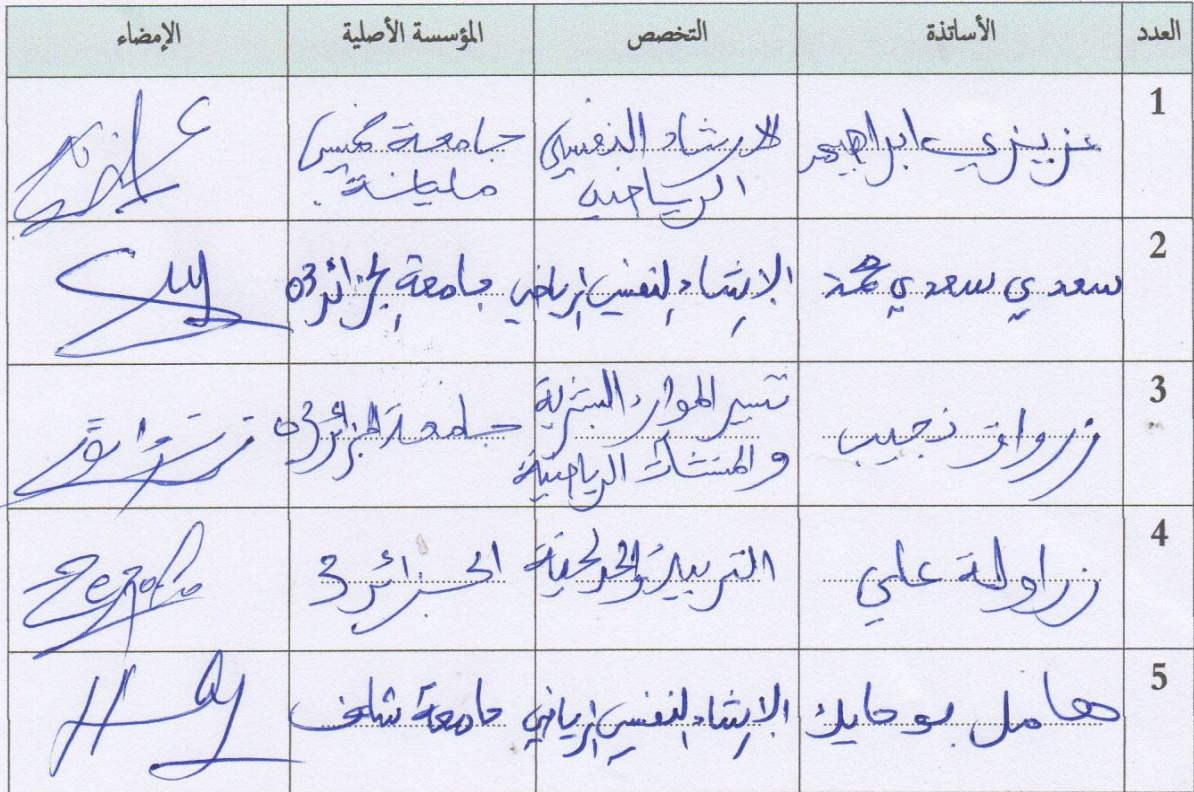 العدد الأساتذة التخصص المؤسسة الأصلية الإمضاء
1 عزيزي ابراهيم الارشاد النفسي جامعة خميس
الرياضي مليانة
2 سعدي سعدي محمد الارشاد النفسي الرياضي جامعة الجزائر 03
3 زرواق نجيب تسيير الموارد البشرية جامعة الجزائر 03
و المنشآت الرياضية
4 زراولة علي التربية الجزائر 3
5 هامل الارشاد النفسي الرياضي جامعة شلف